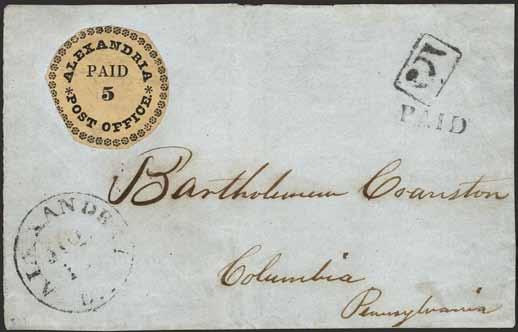 ALEXANDRIA
PAID
5
* POST OFFICE. *
5
PAID
Bartholemew Coanston
Columbia
Pennsylvania